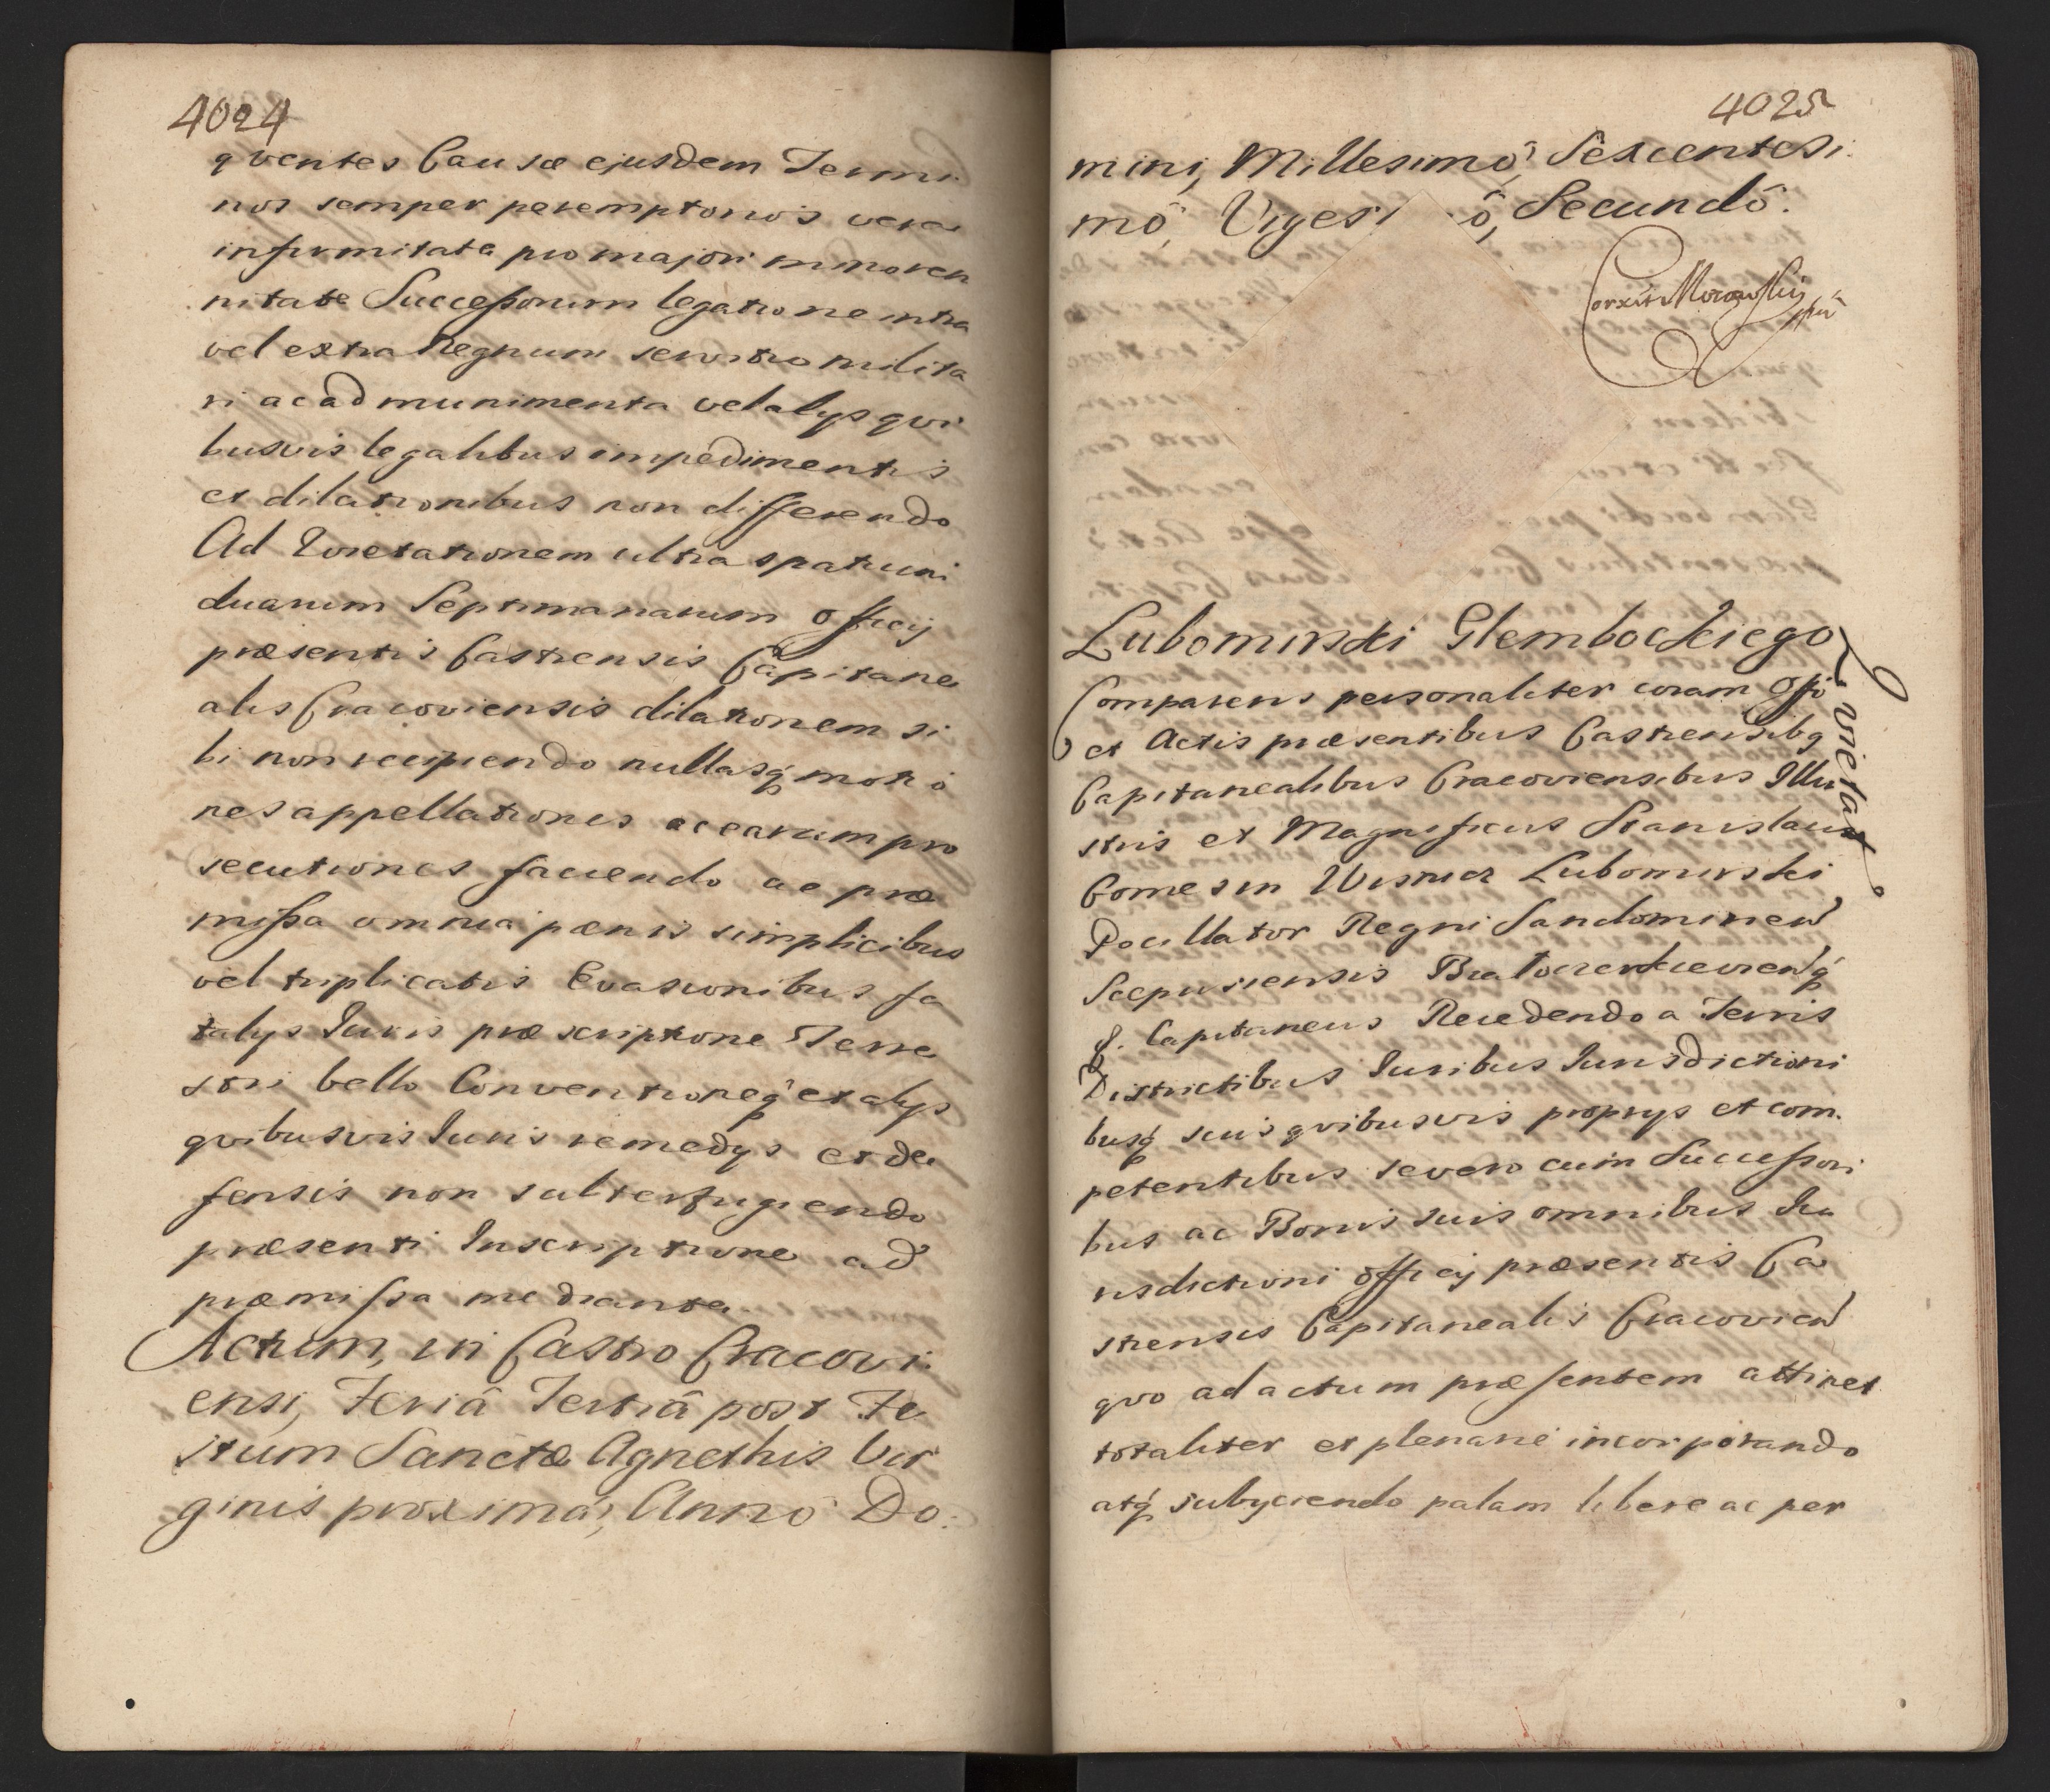 4024
qventes Causæ ejusdem Termi
nos semper peremptorios vera
infirmitate pro majori minoren
nitate Successorum legatione intra
vel extra Regnum servitio milita
ri ac ad munimenta vel alys qvi
busvis legalibus impedimentis
et dilationibus non differendo
Ad Vietationem ultra spatium
duarum Septimanarum officij
præsentis Castrensis Capitane
alis Cracoviensis dilationem si
bi non recipiendo nullasq́ motio
nes appellationes ac earum pro
secutiones faciendo ac præ
missa omnia pænis simplicibus
vel triplicatis Evasionibus fa
talys Iuris præscriptione Terre
stri bello Conventioneq́ et alys
qvibusvis Iuris remedys et de
fensis non subterfugiendo
præsenti Inscriptione ad
præmissa mediante.
Actum, in Castro Cracovi.
ensi, Feriâ Tertiâ post Fe
stum Sanctæ Agnethis Vir
ginis proximá, Annó Do:
4025
mini, Millesimô, Sexcentesi.
mô, Viges ô, Secundô.
Corxit Morawskij mp
Lubomirski Glembockiego
Vietat
Comparens personaliter coram Offo
et Actis præsentibus Castrensibq
Capitanealibus Cracoviensibus Illu
stris et Magnificus Stanislaus
Comes in Wisnicz Lubomirski
Pocillator Regni Sandomirien
Scepusiensis q́
&. Capitaneus Recedendo a Terris
Districtibus Iuribus Iurisdictioni
busq́ suis qvibusvis proprys et com.
petentibus se vero cum Successori
bus ac Bonis suis omnibus Iu
risdictioni officij præsentis Ca
strensis Capitanealis Cracovien
qvo ad actum præsentem attinet
totaliter et plenarie incorporando
atq́ subyciendo palam libere ac per